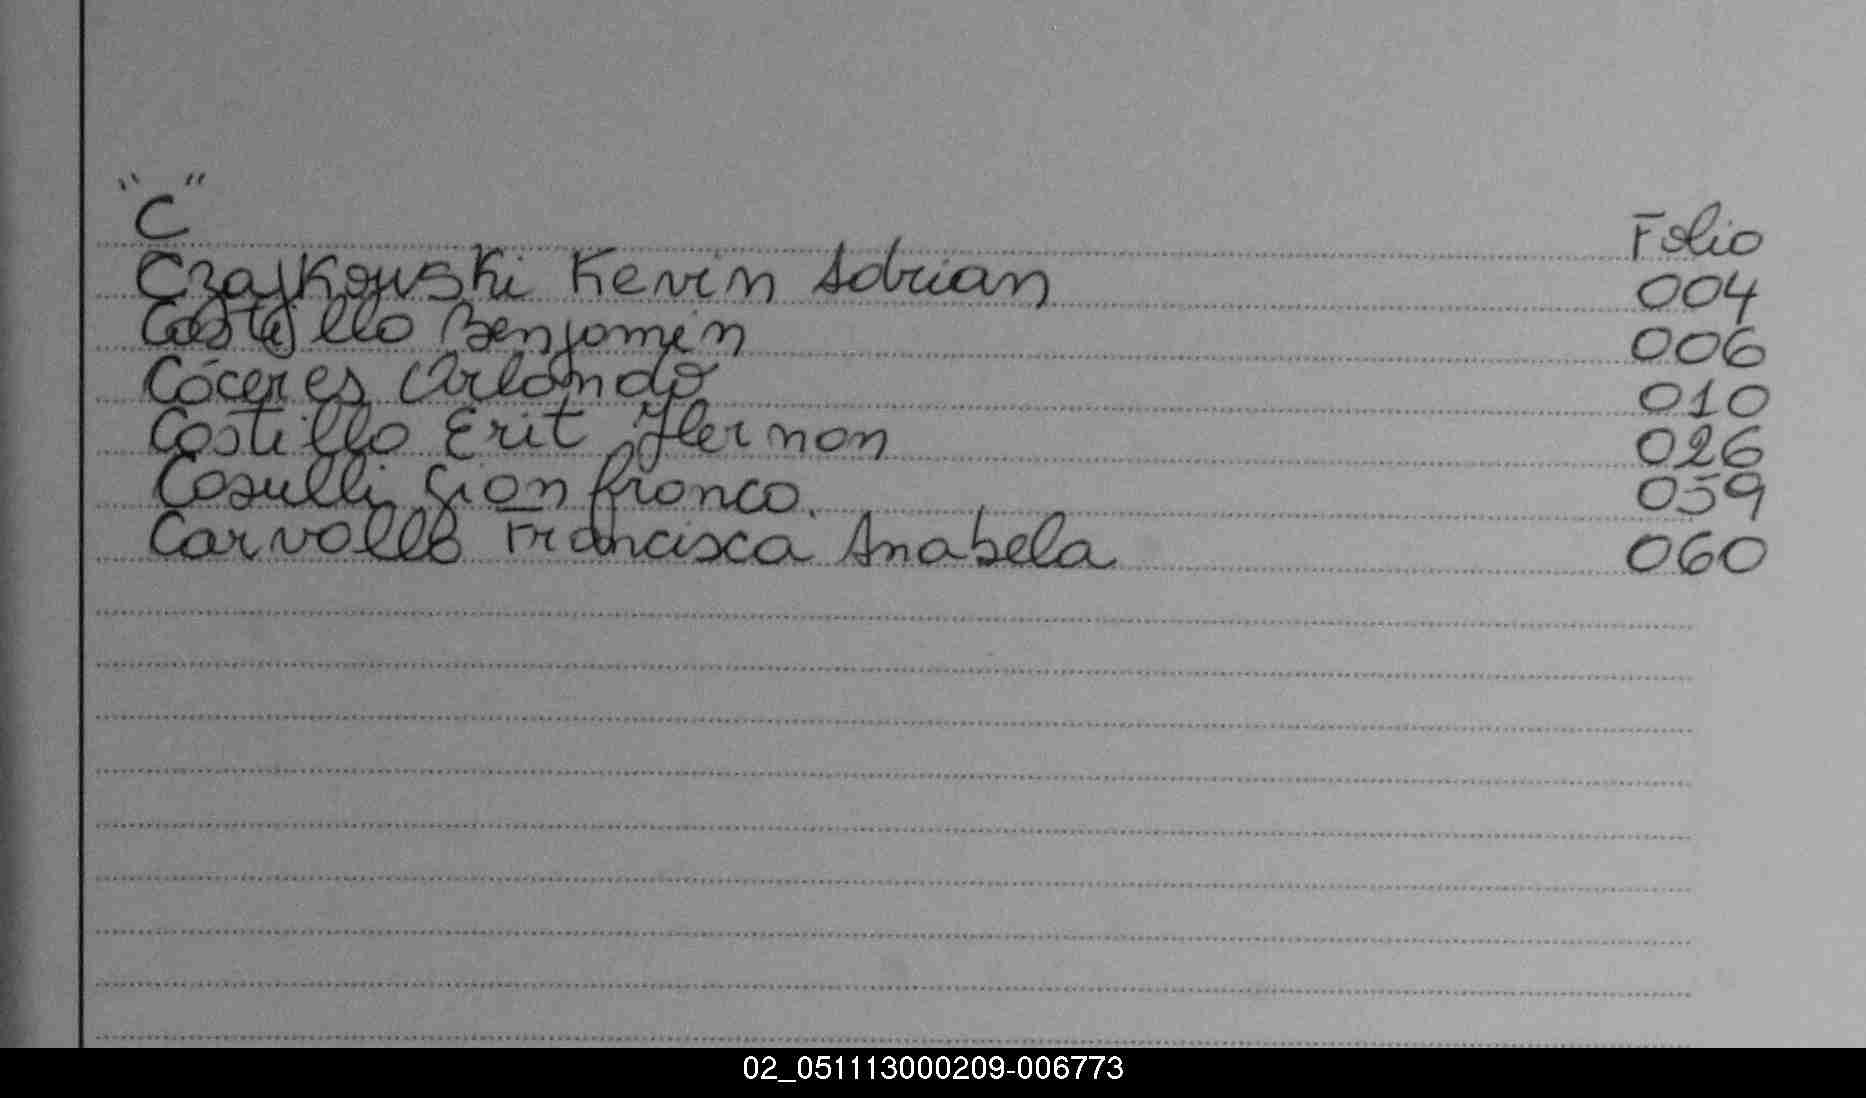 "C"
Folio
Czajkowski Kevin Adrian 004
Castillo Benjamin 006
Cáceres Orlando 010
Castillo Erit Hernan 026
Casulli Gianfranco. 059
Carvallo Francisca Anabela 060
02_051113000209-006773